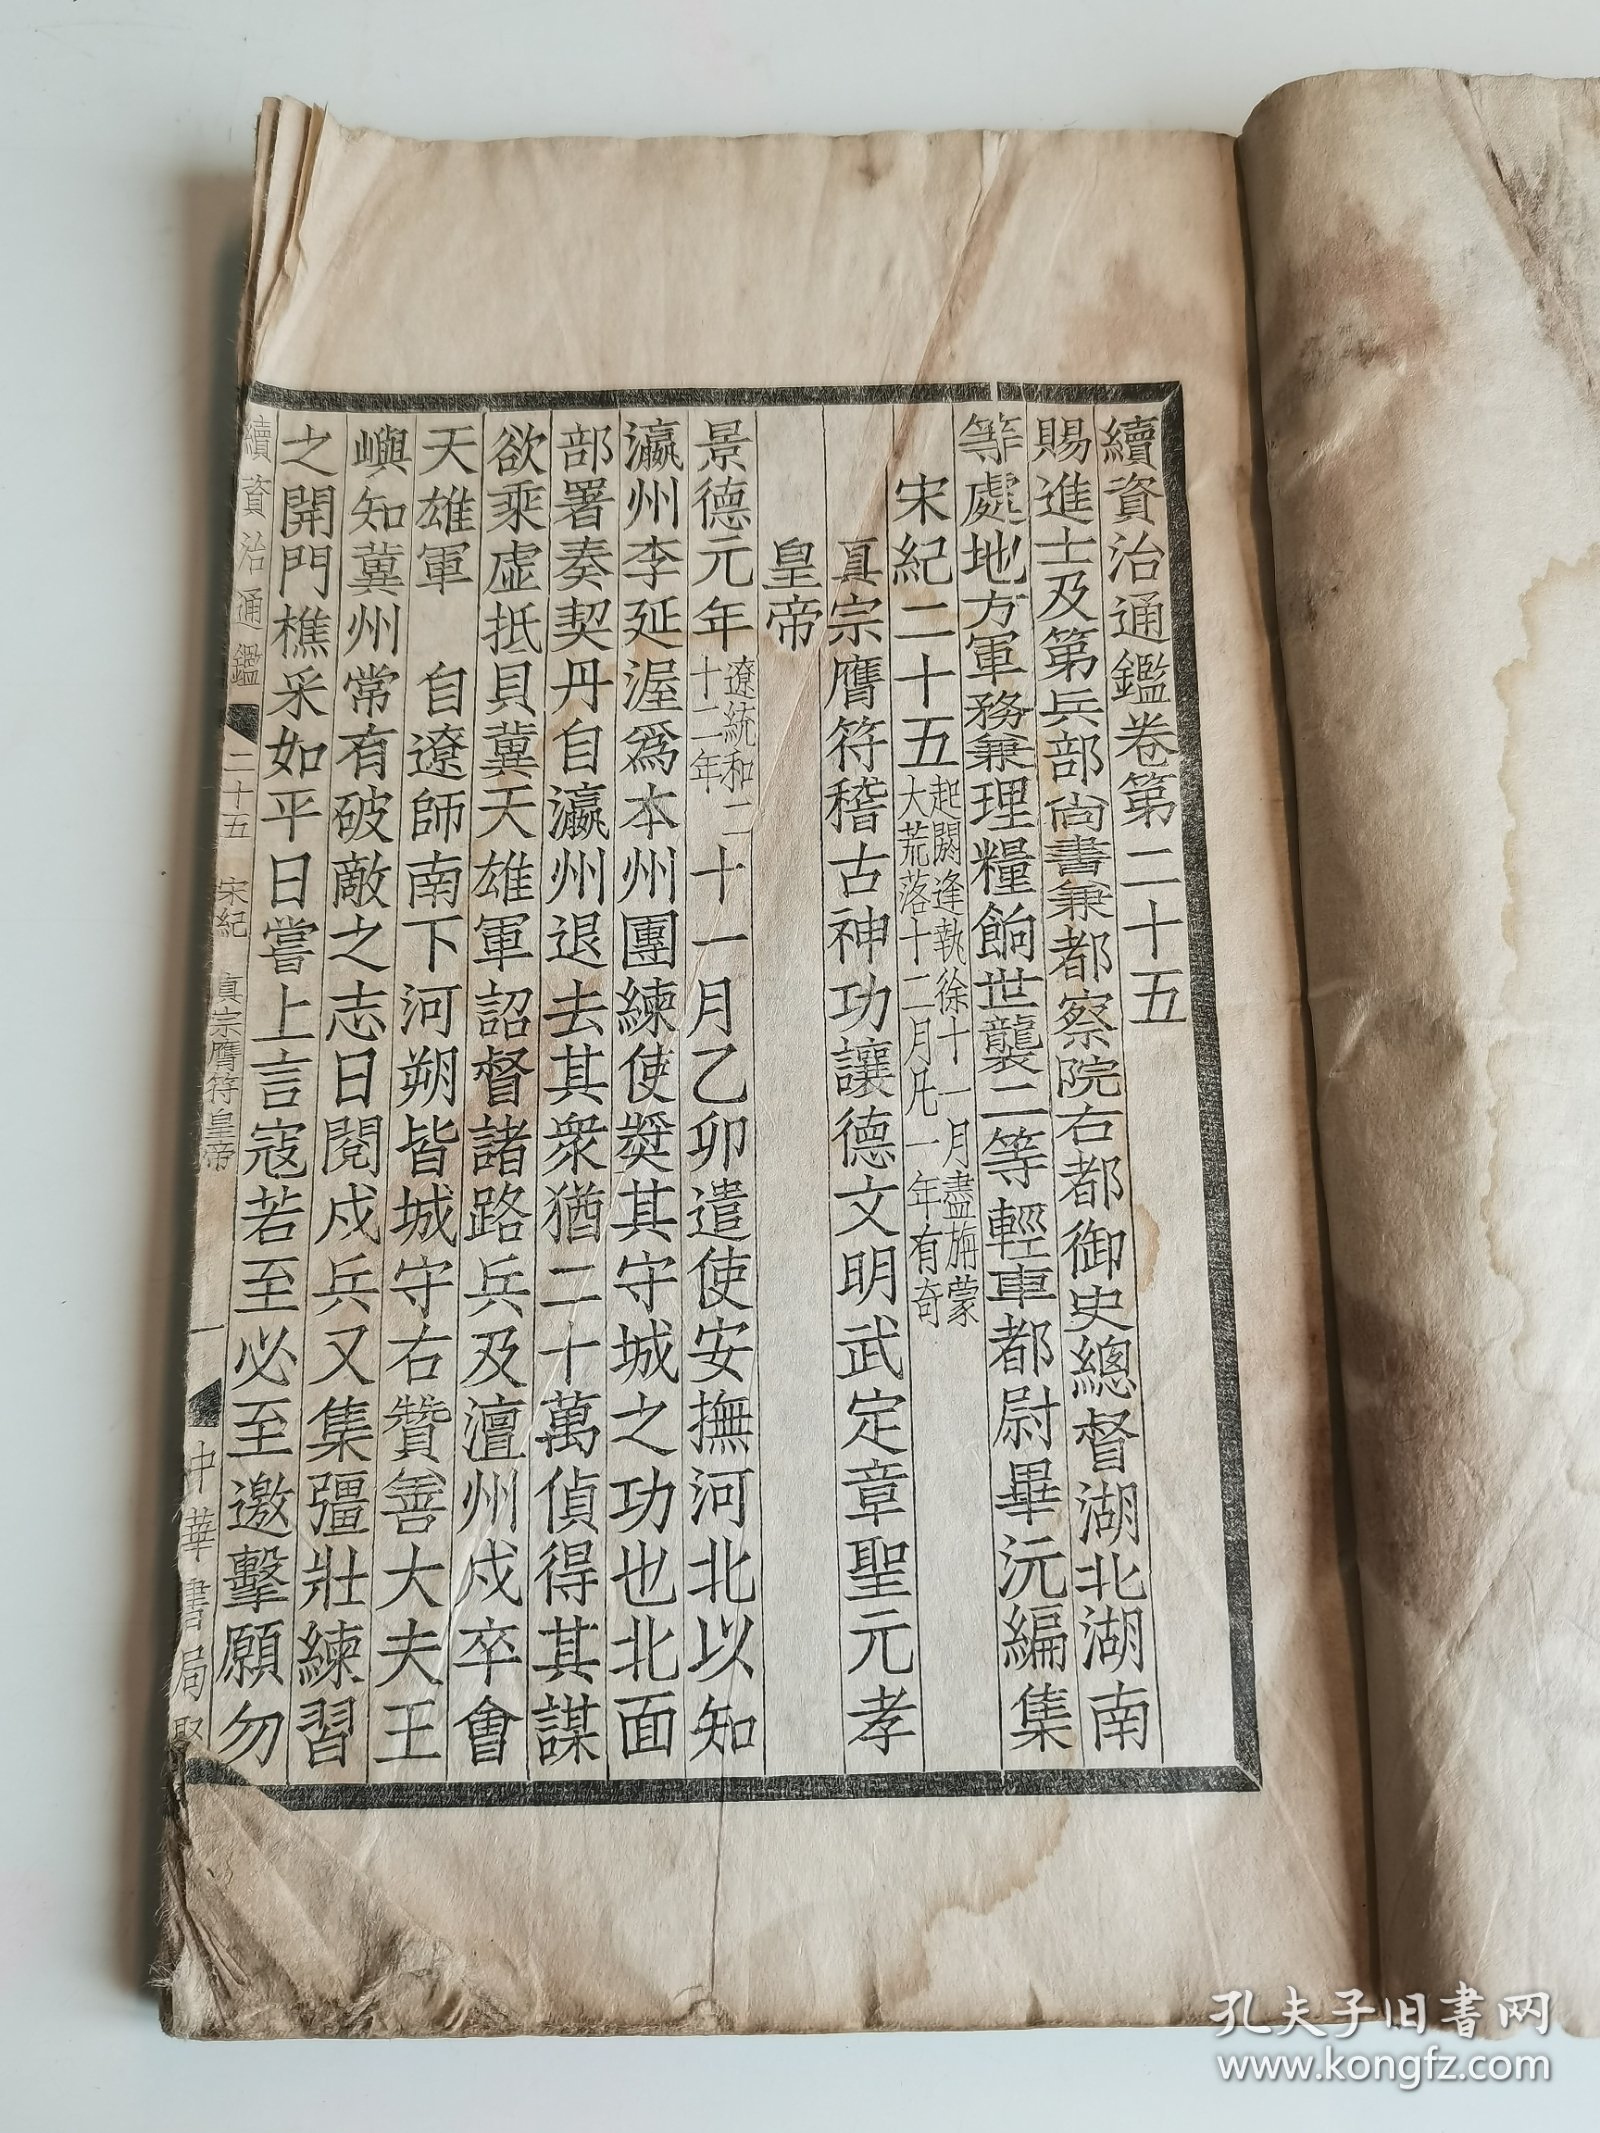 續資治通鑑卷第二十五
賜進士及第兵部尚書兼都察院右都御史總督湖北湖南
等處地方軍務兼理糧餉世襲二等輕車都尉畢沅編集
宋紀二十五起閼逢執徐十一月盡旃蒙大荒落十二月凡一年有奇
真宗膺符稽古神功讓德文明武定章聖元孝
皇帝
景德元年遼統和二十二年十一月乙卯遣使安撫河北以知
瀛州李延渥爲本州團練使獎其守城之功也北面
部署奏契丹自瀛州退去其衆猶二十萬偵得其謀
欲乘虛抵貝冀天雄軍詔督諸路兵及澶州戍卒會
天雄軍　自遼師南下河朔皆城守右贊善大夫王
嶼知冀州常有破敵之志日閱戍兵又集彊壯練習
之開門樵采如平日嘗上言寇若至必至邀擊願勿
續資治通鑑 二十五 宋紀 真宗膺符皇帝 一 中華書局聚
孔夫子旧书网
www.kongfz.com